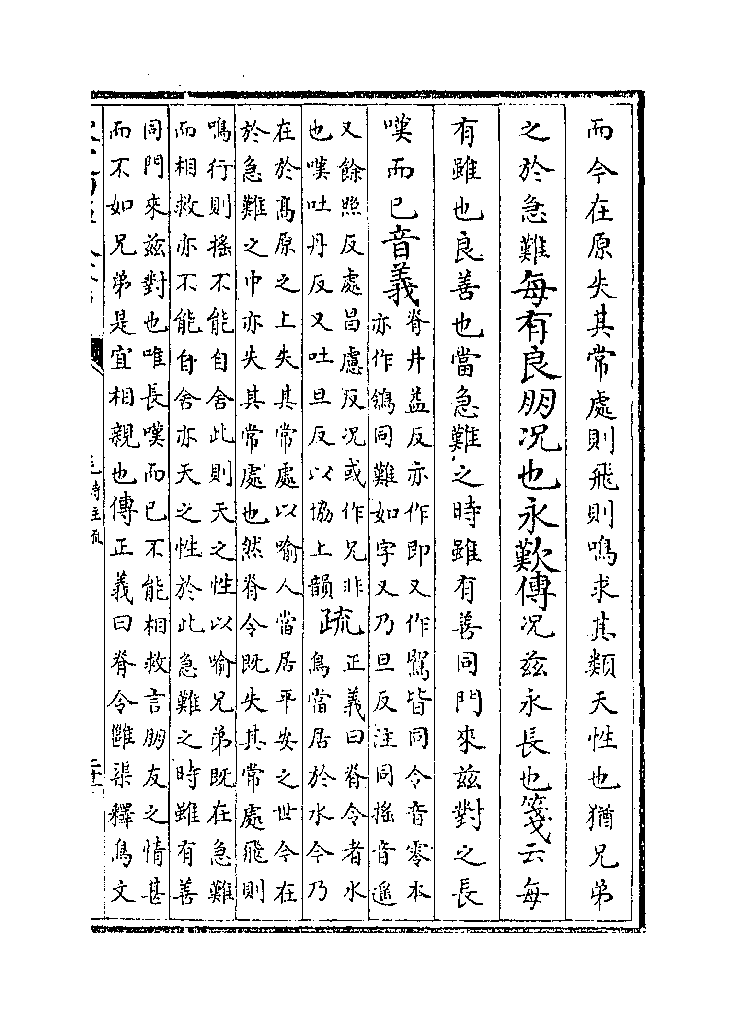 而今在原失其常處則飛則鳴求其類天性也猶兄弟
之於急難每有良朋况也永歎傳况兹永長也箋云每
有雖也良善也當急難之時雖有善同門來兹對之長
嘆而已音義脊井益反亦作即又作䳭皆同令音零本
亦作鴒同難如字又乃旦反注同揺音遥
又餘照反處昌慮反况或作兄非
也嘆吐丹反又吐旦反以協上韻疏正義曰脊令者水
鳥當居於水今乃
在於髙原之上失其常處以喻人當居平安之世今在
於急難之中亦失其常處也然脊令既失其常處飛則
鳴行則揺不能自舍此則天之性以喻兄弟既在急難
而相救亦不能自舍亦天之性於此急難之時雖有善
同門來兹對也唯長嘆而已不能相救言朋友之情甚
而不如兄弟是宜相親也傳正義曰脊令雝渠釋鳥文